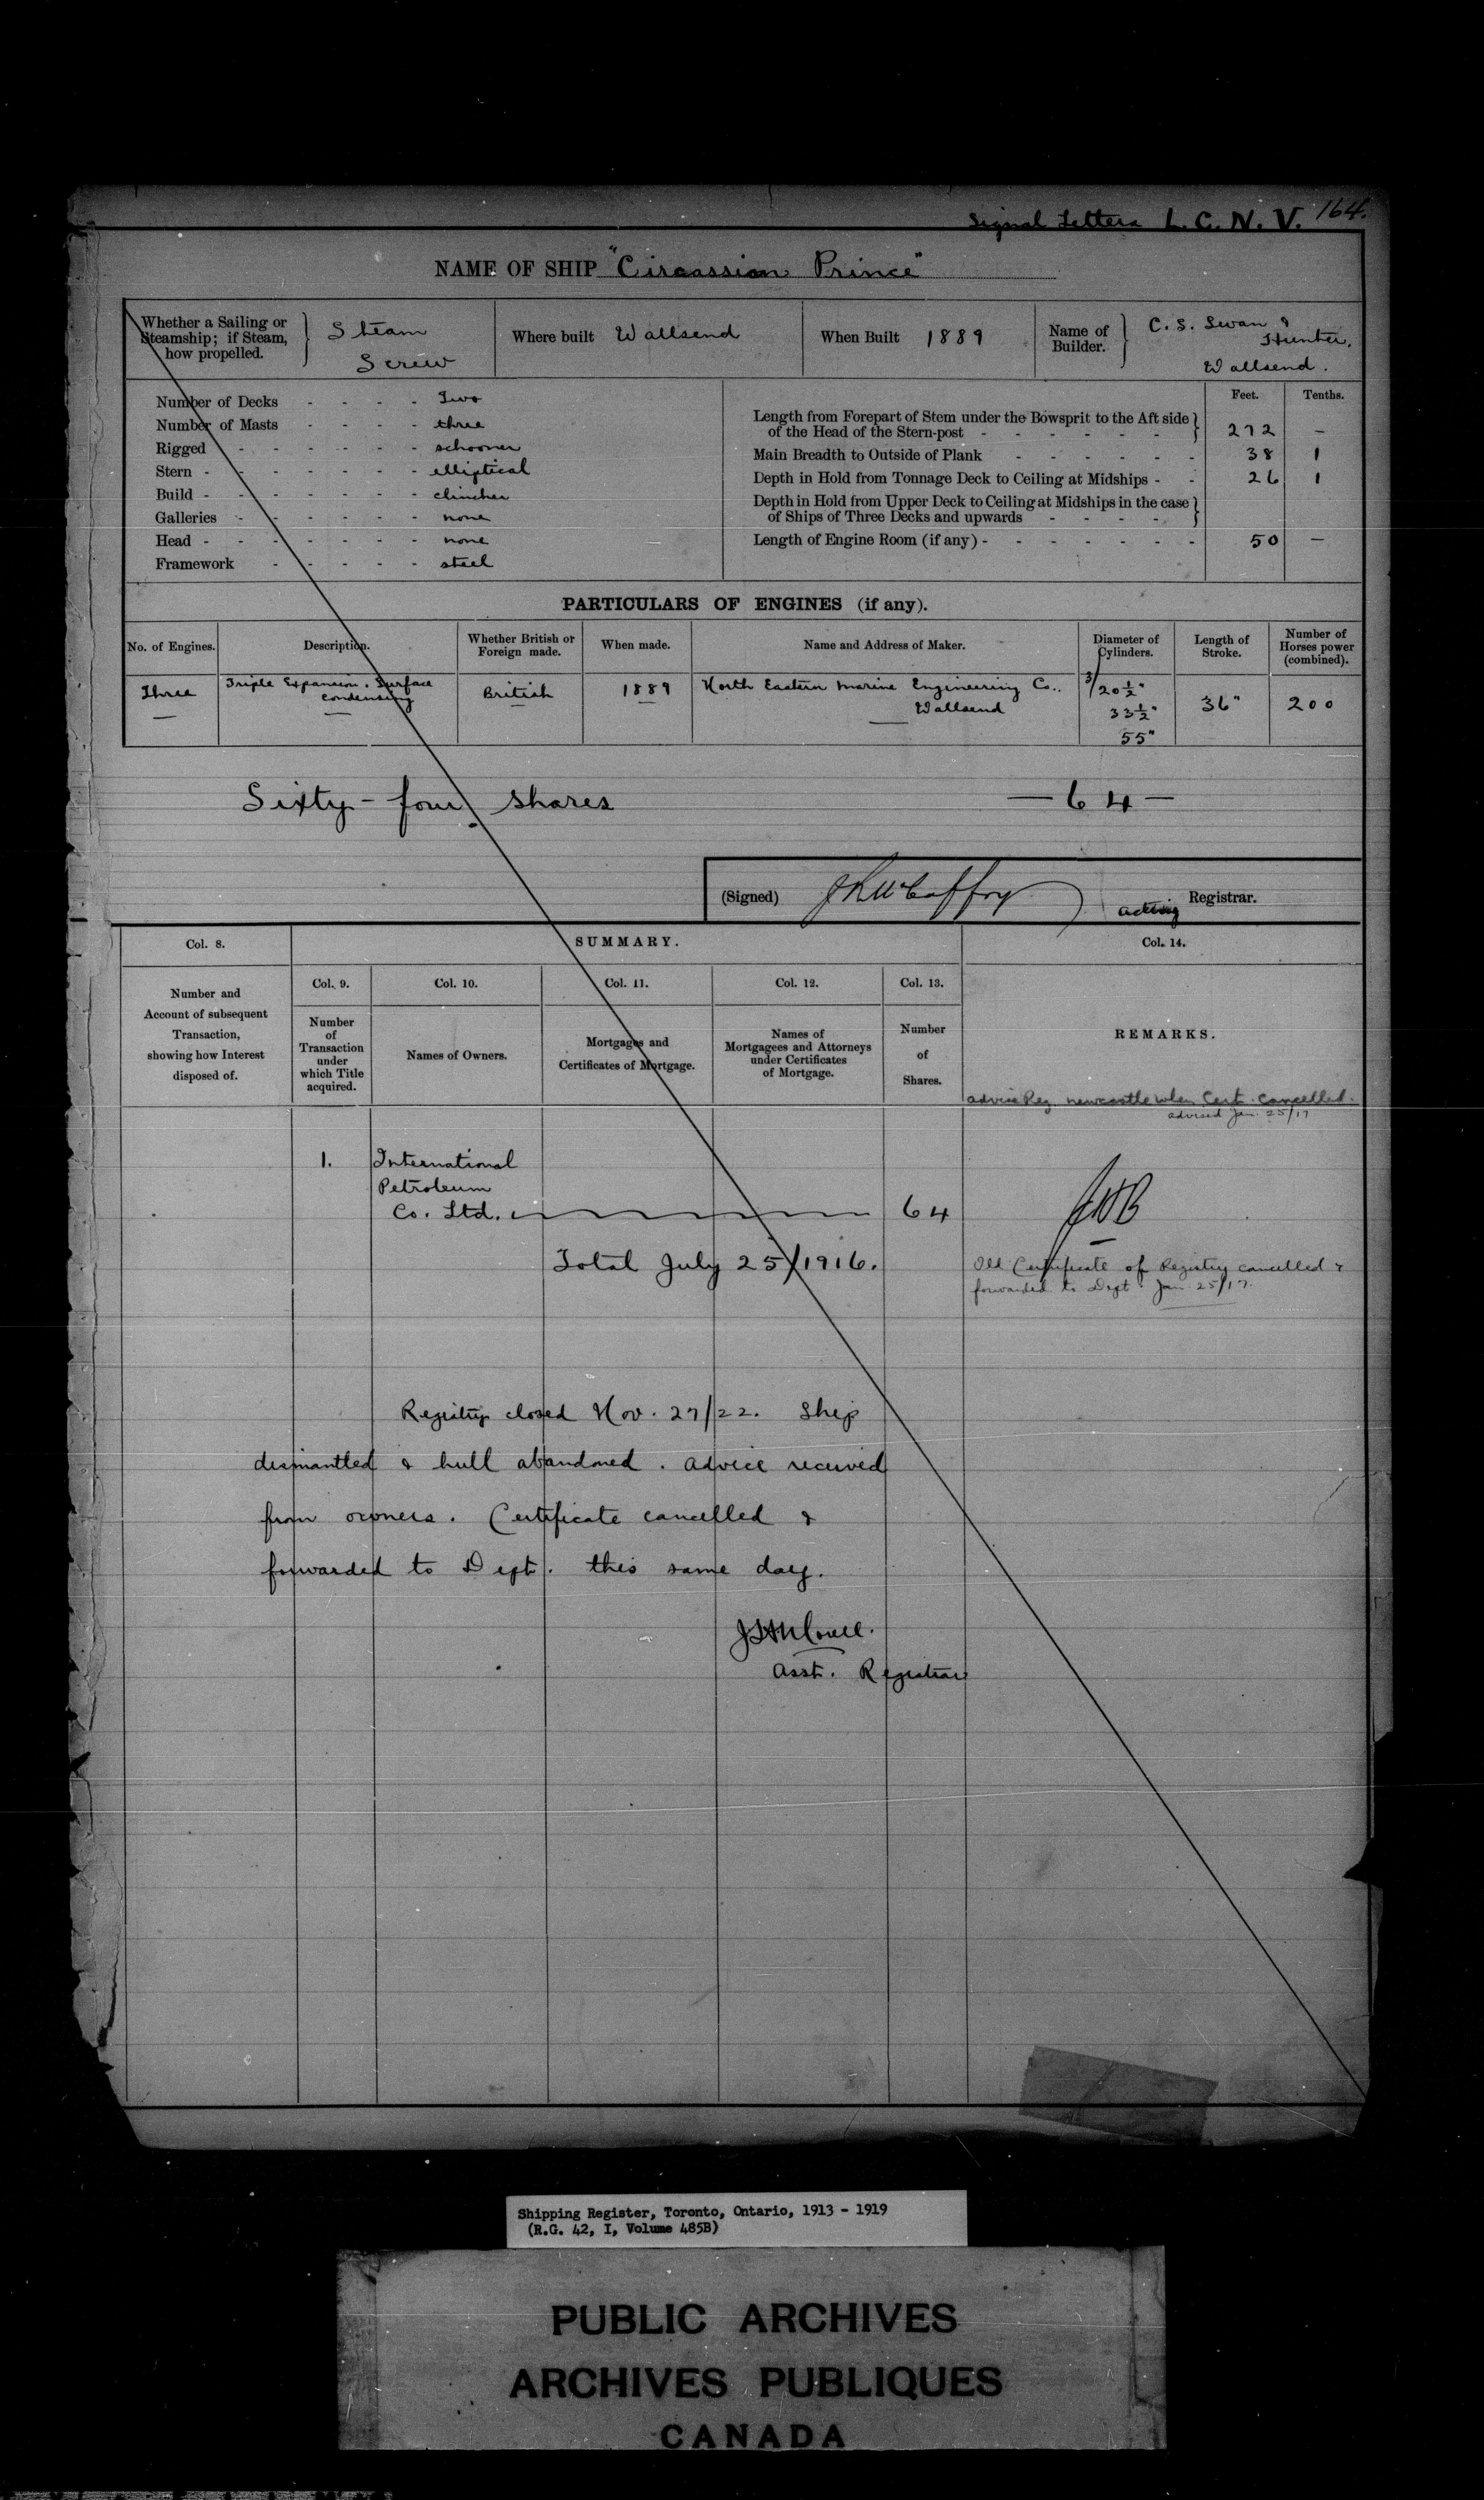 Signal Letters L. C. N. V. 164.
NAME OF SHIP "Circassian Prince"
Whether a Sailing or
Steamship; if Steam,
how propelled.
Steam
Screw
Where built Wallsend
When Built 1889
Name of
Builder.
C. S. Swan &
Hunter.
Wallsend.
Number of Decks - - - - Two
Number of Masts - - - - three
Rigged - - - - - - schooner
Stern - - - - - - elliptical
Build - - - - - - clincher
Galleries - - - - - - none
Head - - - - - - none
Framework - - - - - steel
Feet. Tenths.
Length from Forepart of Stem under the Bowsprit to the Aft side
of the Head of the Stern-post - - - - - - 272 —
Main Breadth to Outside of Plank - - - - - 38 1
Depth in Hold from Tonnage Deck to Ceiling at Midships - - 26 1
Depth in Hold from Upper Deck to Ceiling at Midships in the case
of Ships of Three Decks and upwards - - - -
Length of Engine Room (if any) - - - - - - 50 —
PARTICULARS OF ENGINES (if any).
No. of Engines.
Description.
Whether British or
Foreign made.
When made.
Name and Address of Maker.
Diameter of
Cylinders.
Length of
Stroke.
Number of
Horses power
(combined).
Three
Triple Expansion. Surface
condensing
British
1889
North Eastern Marine Engineering Co..
Wallsend
3/20½"
33½"
55"
36"
200
Sixty-four shares — 64 —
(Signed) acting Registrar.
Col. 8.
SUMMARY.
Col. 14.
Number and
Account of subsequent
Transaction,
showing how Interest
disposed of.
Col. 9.
Number
of
Transaction
under
which Title
acquired.
Col. 10.
Names of Owners.
Col. 11.
Mortgages and
Certificates of Mortgage.
Col. 12.
Names of
Mortgagees and Attorneys
under Certificates
of Mortgage.
Col. 13.
Number
of
Shares.
REMARKS.
advise Reg. newcastle when Cert. cancelled.
advised Jan. 25/17
1. International
Petroleum
Co. Ltd. 64
Total July 25/1916.
Old Certificate of Registry cancelled &
forwarded to Dept. Jan. 25/17.
Registry closed Nov. 27/22. Ship
dismantled & hull abandoned. advice received
from owners. Certificate cancelled &
forwarded to Dept. this same day.
Asst. Registrar
Shipping Register, Toronto, Ontario, 1913 - 1919
(R.G. 42, I, Volume 485B)
PUBLIC ARCHIVES
ARCHIVES PUBLIQUES
CANADA